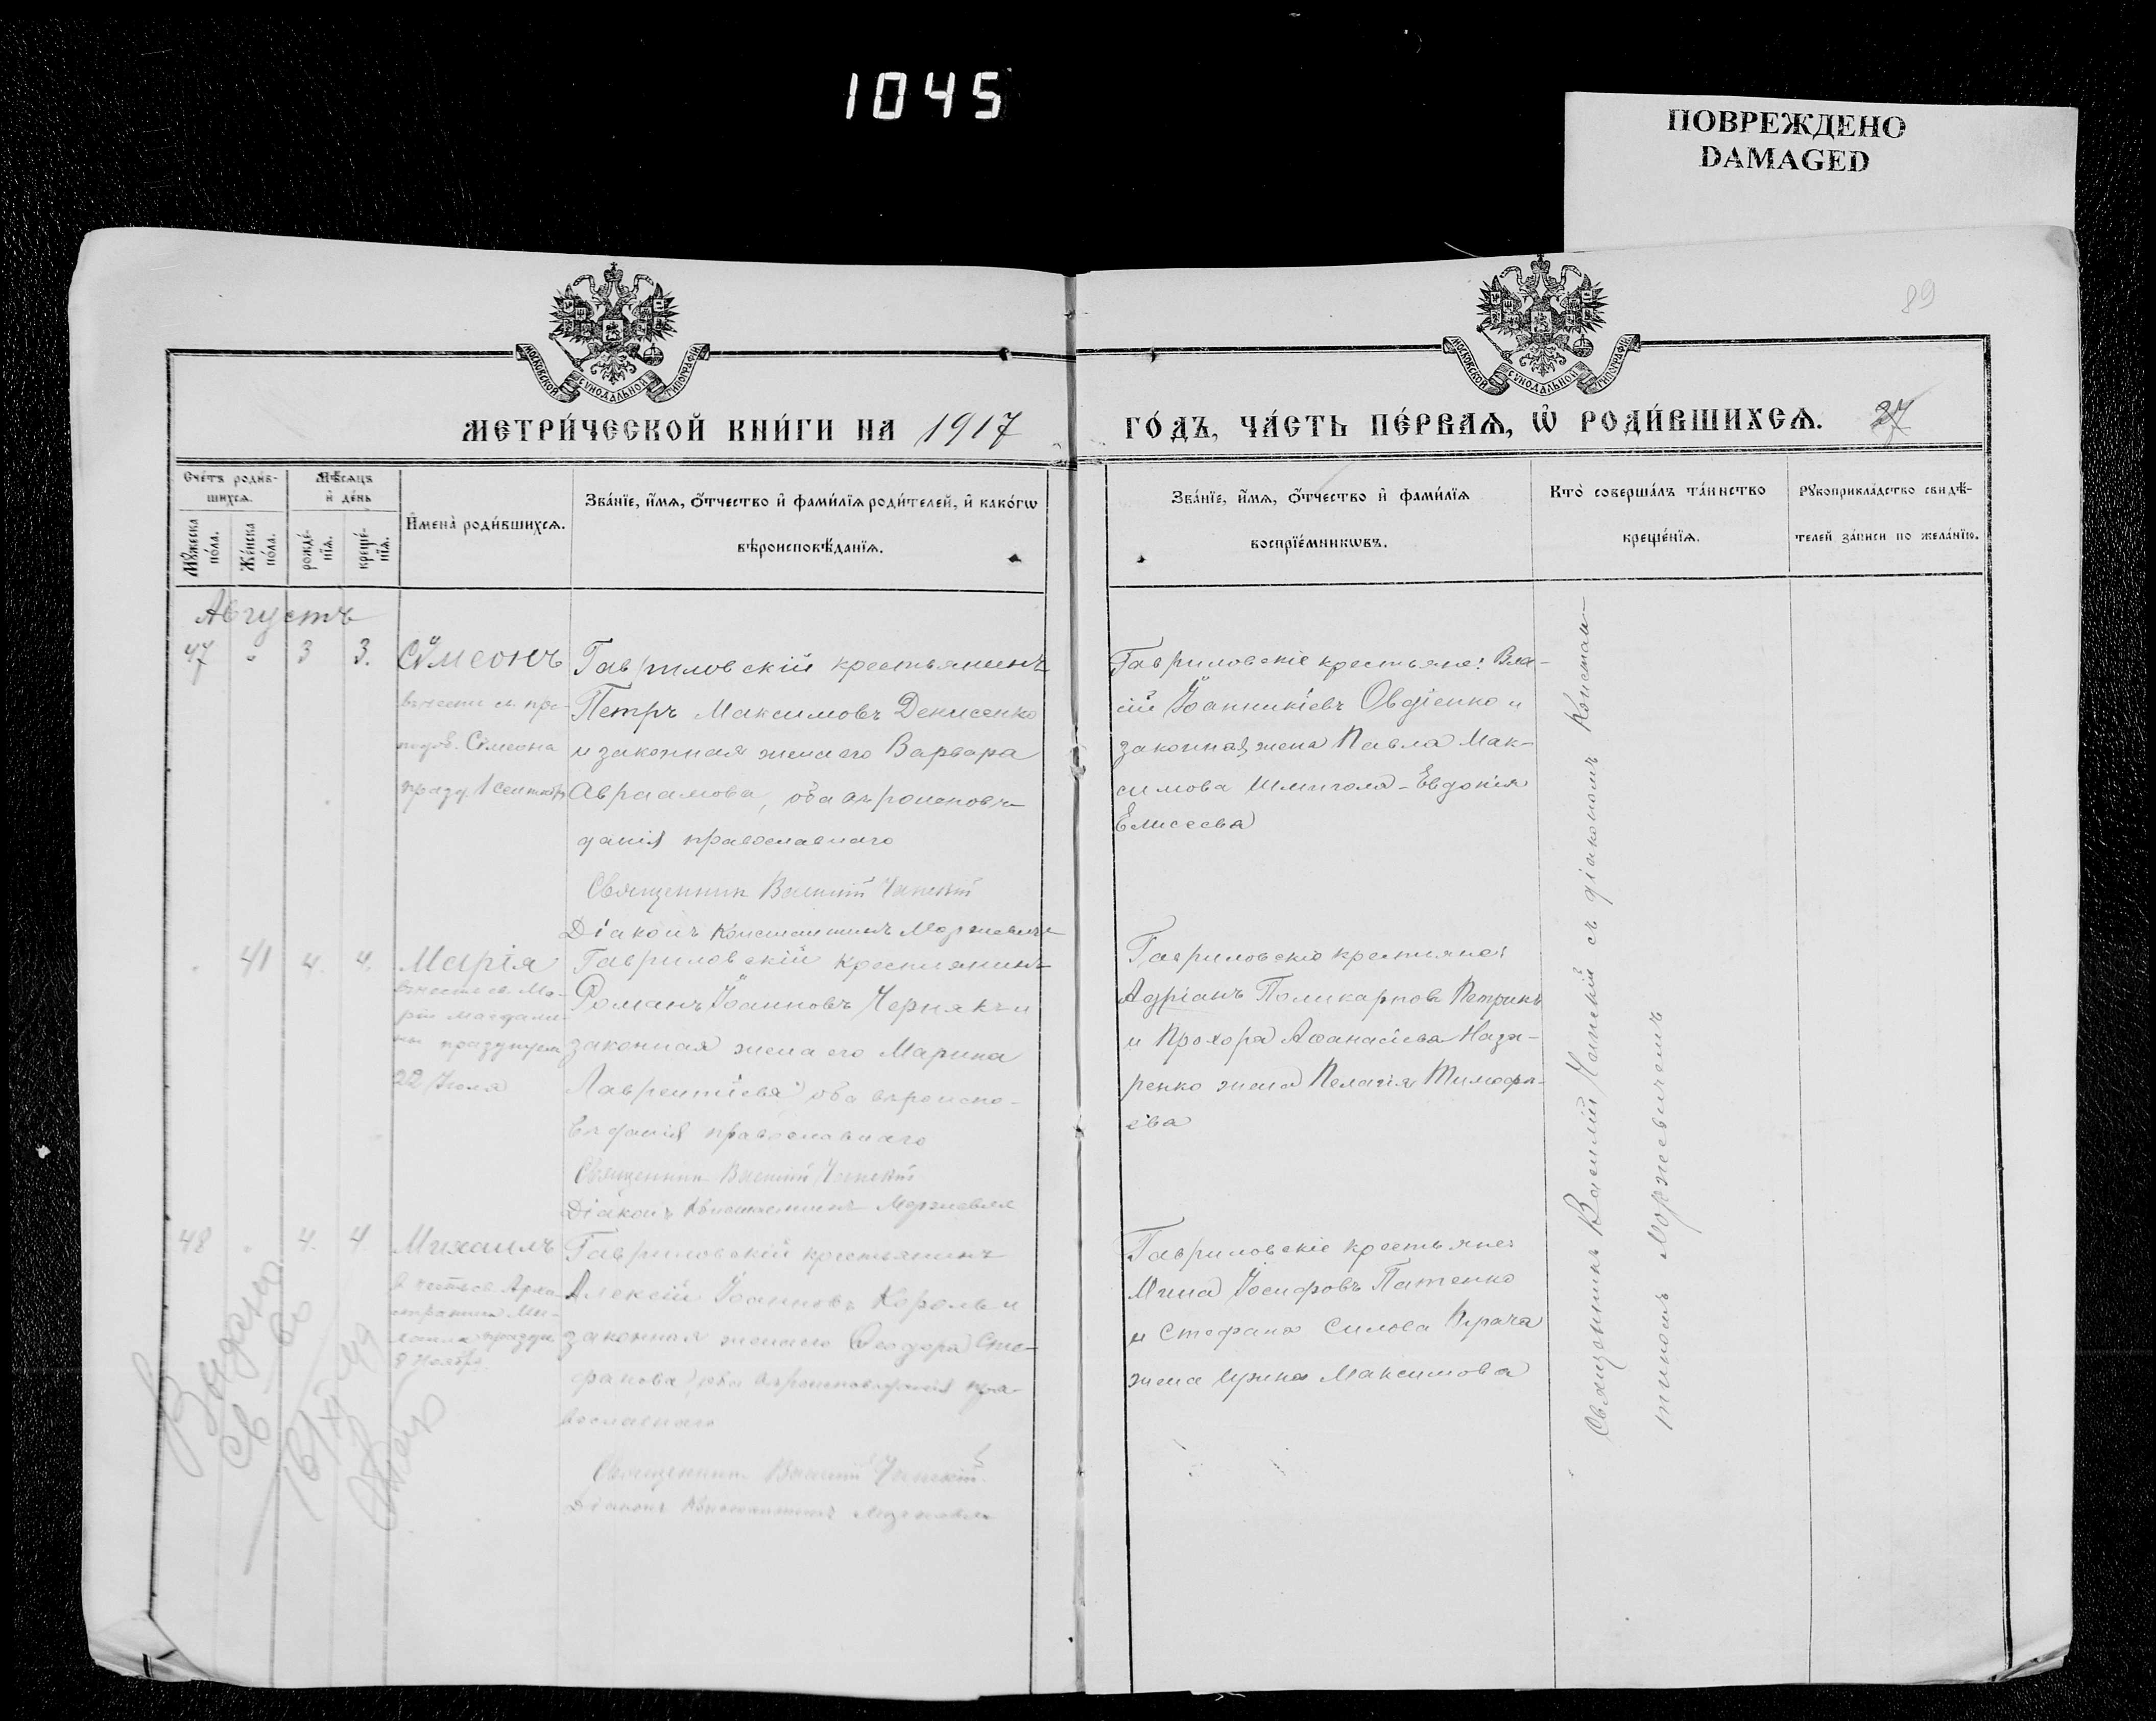 1045
ПОВРЕЖДЕНО
DAMAGED
89
МОСКОВСКОЙ СѴНОДАЛЬНОЙ ТИПОГРАФІИ
МОСКОВСКОЙ СѴНОДАЛЬНОЙ ТИПОГРАФІИ
МЕТРИ́ЧЕСКОЙ КНИ́ГИ НА 1917
ГО́ДЪ, ЧА́СТЬ ПЕ́РВАѦ, Ѡ҆ РОДИ́ВШИХСѦ. 27
Сче́тъ роди́в-
шихсѧ.
Мꙋ́жеска
по́ла.
Же́нска
по́ла.
Мѣ́сѧцъ
и҆ де́нь
рожде́-
нїѧ.
креще́-
нїѧ.
И҆мена̀ роди́вшихсѧ.
Зва́нїе, и҆́мѧ, ѻ҆́тчество и҆ фами́лїѧ роди́телей, и҆ како́гѡ
вѣроисповѣ́данїѧ.
Зва́нїе, и҆́мѧ, ѻ҆́тчество и҆ фами́лїѧ
воспрїе́мникѡвъ.
Кто̀ соверша́лъ та́инство
креще́нїѧ.
Рꙋкоприкла́дство свидѣ́-
телей за́писи по жела́нїю.
Августъ
47 " 3 3. Сѵмеонъ
въ честь св. пре-
подоб. Сімеона
празд. 1 Сентября
Гавриловскій крестьянинъ
Петръ Максимовъ Денисенко
и законная жена его Варвара
Авраамова, оба вѣроисповѣ-
данія православнаго
Священник Василій Чапскій
Діаконъ Константинъ Моржевичъ
Гавриловскіе крестьяне: Вла-
сій Іоанникіевъ Овдіенко и
законная жена Павла Мак-
симова Шмигола - Евдокія
Елисеева
" 41 4. 4. Марія
въ честь св. Ма-
ріи Магдали-
ны празднуем
22 Іюля
Гавриловскій крестьянинъ
Романъ Іоанновъ Чернякъ и
законная жена его Марина
Лаврентіева, оба вѣроиспо-
вѣданія православнаго
Священник Василій Чапскій
Діаконъ Константинъ Моржевич
Гавриловскіе крестьяне:
Адріанъ Поликарповъ Петрикъ
и Прохора Аѳанасіева Наза-
ренко жена Пелагія Тимоѳе-
ева
48 " 4. 4 Михаилъ
в честь св. Архи-
стратига Ми-
хаила праздн
8 Ноября
Гавриловскій крестьянинъ
Алексій Іоанновъ Король и
законная жена его Ѳеодора Сте-
фанова, оба вѣроисповѣданія пра-
вославнаго
Священник Василій Чапскій
Діаконъ Константинъ Моржевич
Гавриловскіе крестьяне:
Мина Іосифовъ Патенко
и Стефана Силова
жена Ирина Максимова
Выдано
св во
Священникъ Василій Чапскій съ діакономъ Констан-
тиномъ Моржевичемъ